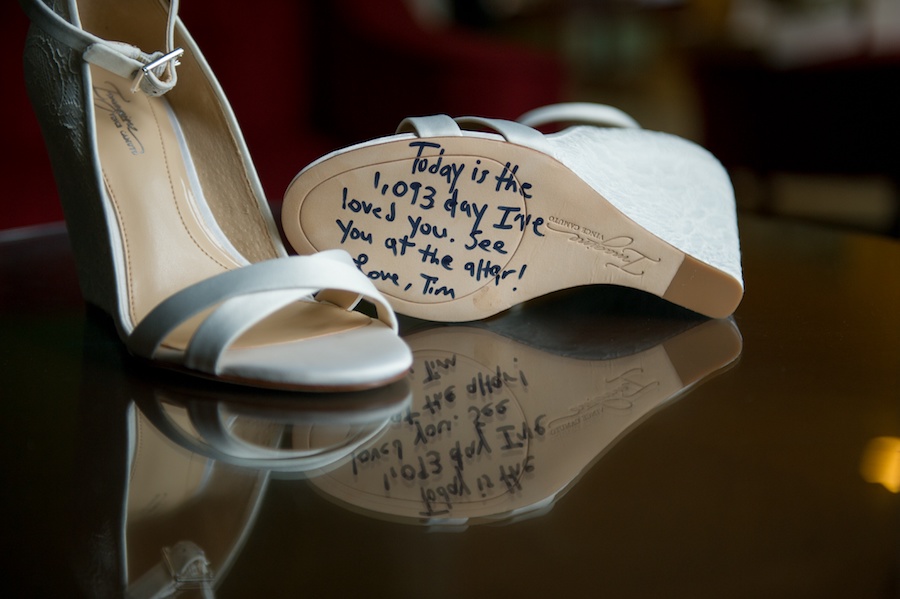 Today is the
1,093 day I've
loved you. See
you at the altar!
Love, Tim
Imagine
VINCE CAMUTO
Imagine
VINCE CAMUTO